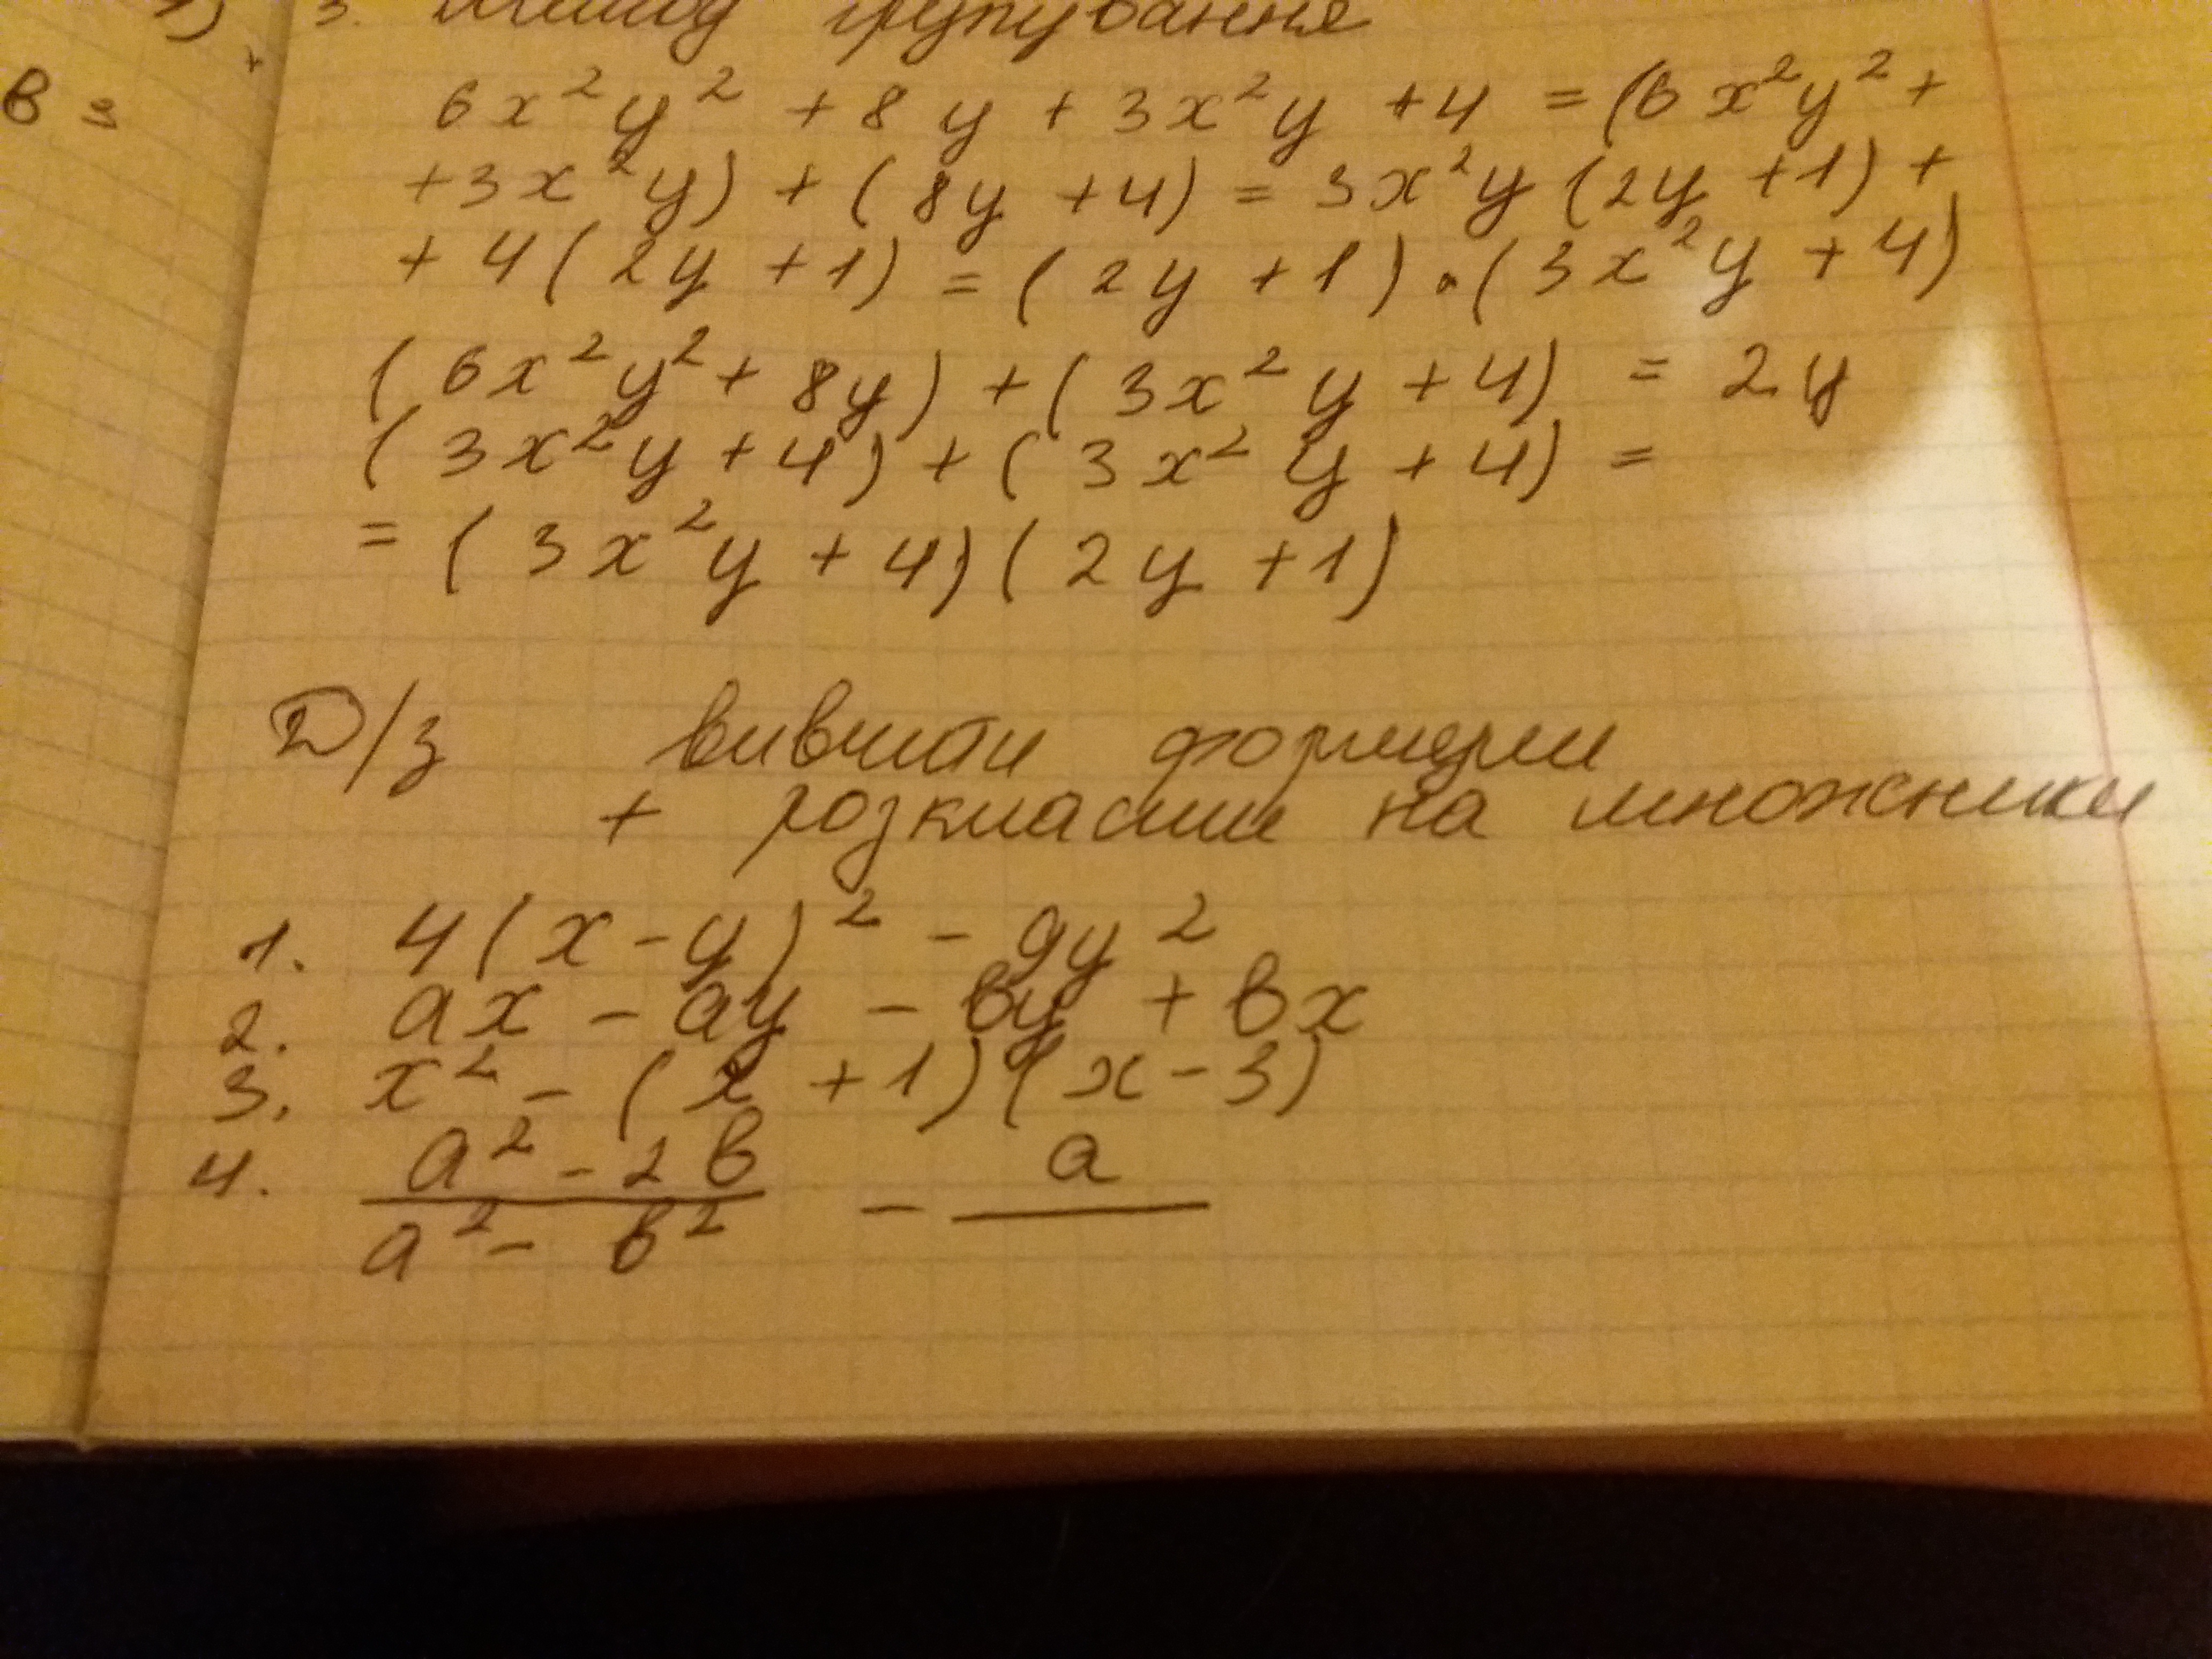 3. Метод групування
в з
6x²y² + 8y + 3x²y + 4 = (6x²y² +
+3x²y) + (8y + 4) = 3x²y (2y + 1) +
+ 4 (2y + 1) = (2y + 1) · (3x²y + 4)
(6x²y² + 8y) + (3x²y + 4) = 2y
(3x²y + 4) + (3x²y + 4) =
= (3x²y + 4) (2y + 1)
Д/з вивчити формули
+ розкласти на множники
1. 4(x - y)² - 9y²
2. ax - ay - вy + вx
3. x² - (x + 1)(x - 3)
4. (a² - 2в)/(a² - в²) - a/